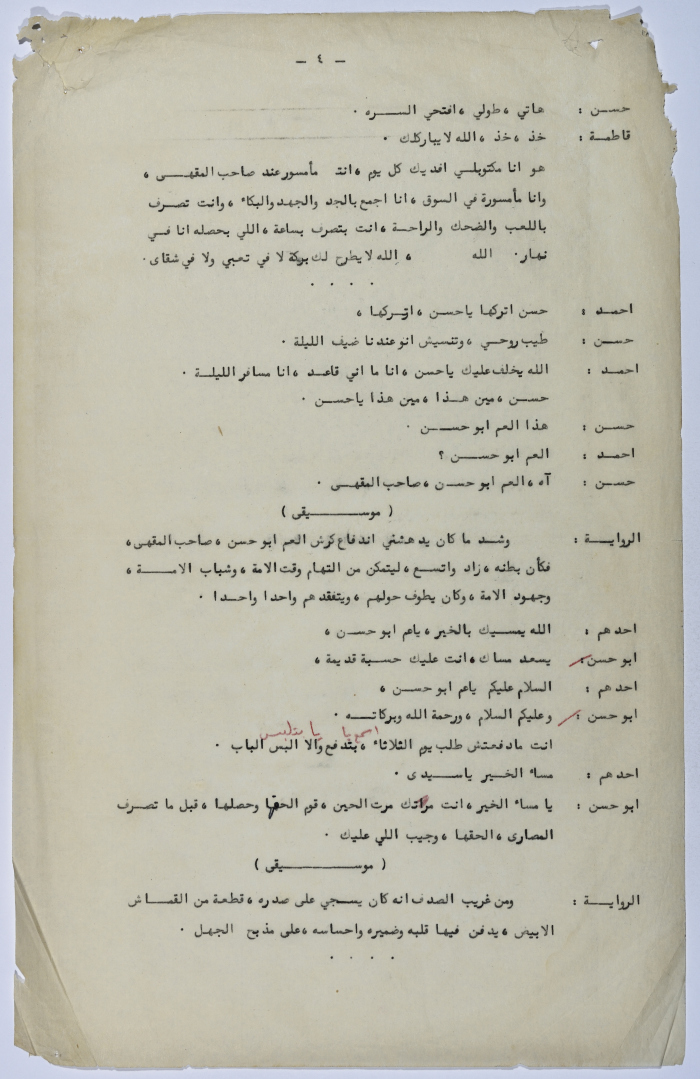 - ٤ -
حسن : هاتي ، طولي ، افتحي السره .
فاطمة : خذ ، خذ ، الله لايباركلك .
هو انا مكتوبلي افديك كل يوم ، انت مأمسور عند صاحب المقهى ،
وانا مأمسورة في السوق ، انا اجمع بالجد والجهد والبكاء ، وانت تصرف
باللعب والضحك والراحة ، انت بتصرف بساعة ، اللي بحصله انا في
نهار . الله ، الله لا يطرح لك بركة لا في تعبي ولا في شقاى .
. . . .
احمد : حسن اتركها ياحسن ، اتركها ،
حسن : طيب روحي ، وتنسيش انو عندنا ضيف الليلة .
احمد : الله يخلف عليك ياحسن ، انا ما اني قاعد ، انا مسافر الليلة .
حسن ، مين هذا ، مين هذا ياحسن .
حسن : هذا العم ابو حسن .
احمد : العم ابو حسن ؟
حسن : آه ، العم ابو حسن ، صاحب المقهى .
( موسيقى )
الرواية : وشد ما كان يدهشني اندفاع كرش العم ابو حسن ، صاحب المقهى ،
فكأن بطنه ، زاد واتسع ، ليتمكن من التهام وقت الامة ، وشباب الامة ،
وجهود الامة ، وكان يطوف حولهم ، ويتفقدهم واحدا واحدا .
احدهم : الله يمسيك بالخير ، ياعم ابو حسن ،
ابو حسن : يسعد مساك ، انت عليك حسبة قديمة ،
احدهم : السلام عليكم ياعم ابو حسن ،
ابو حسن : وعليكم السلام ، ورحمة الله وبركاته .
اسمع يا
انت مادفعتش طلب يوم الثلاثاء ، بتدفع والا البس الباب .
احدهم : مساء الخير ياسيدى .
ابو حسن : يا مساء الخير ، انت مراتك مرت الحين ، قوم الحقها وحصلها ، قبل ما تصرف
المصارى ، الحقها ، وجيب اللي عليك .
( موسيقى )
الرواية : ومن غريب الصدف انه كان يسجي على صدره ، قطعة من القماش
الابيض ، يدفن فيها قلبه وضميره واحساسه ، على مذبح الجهل .
. . . .